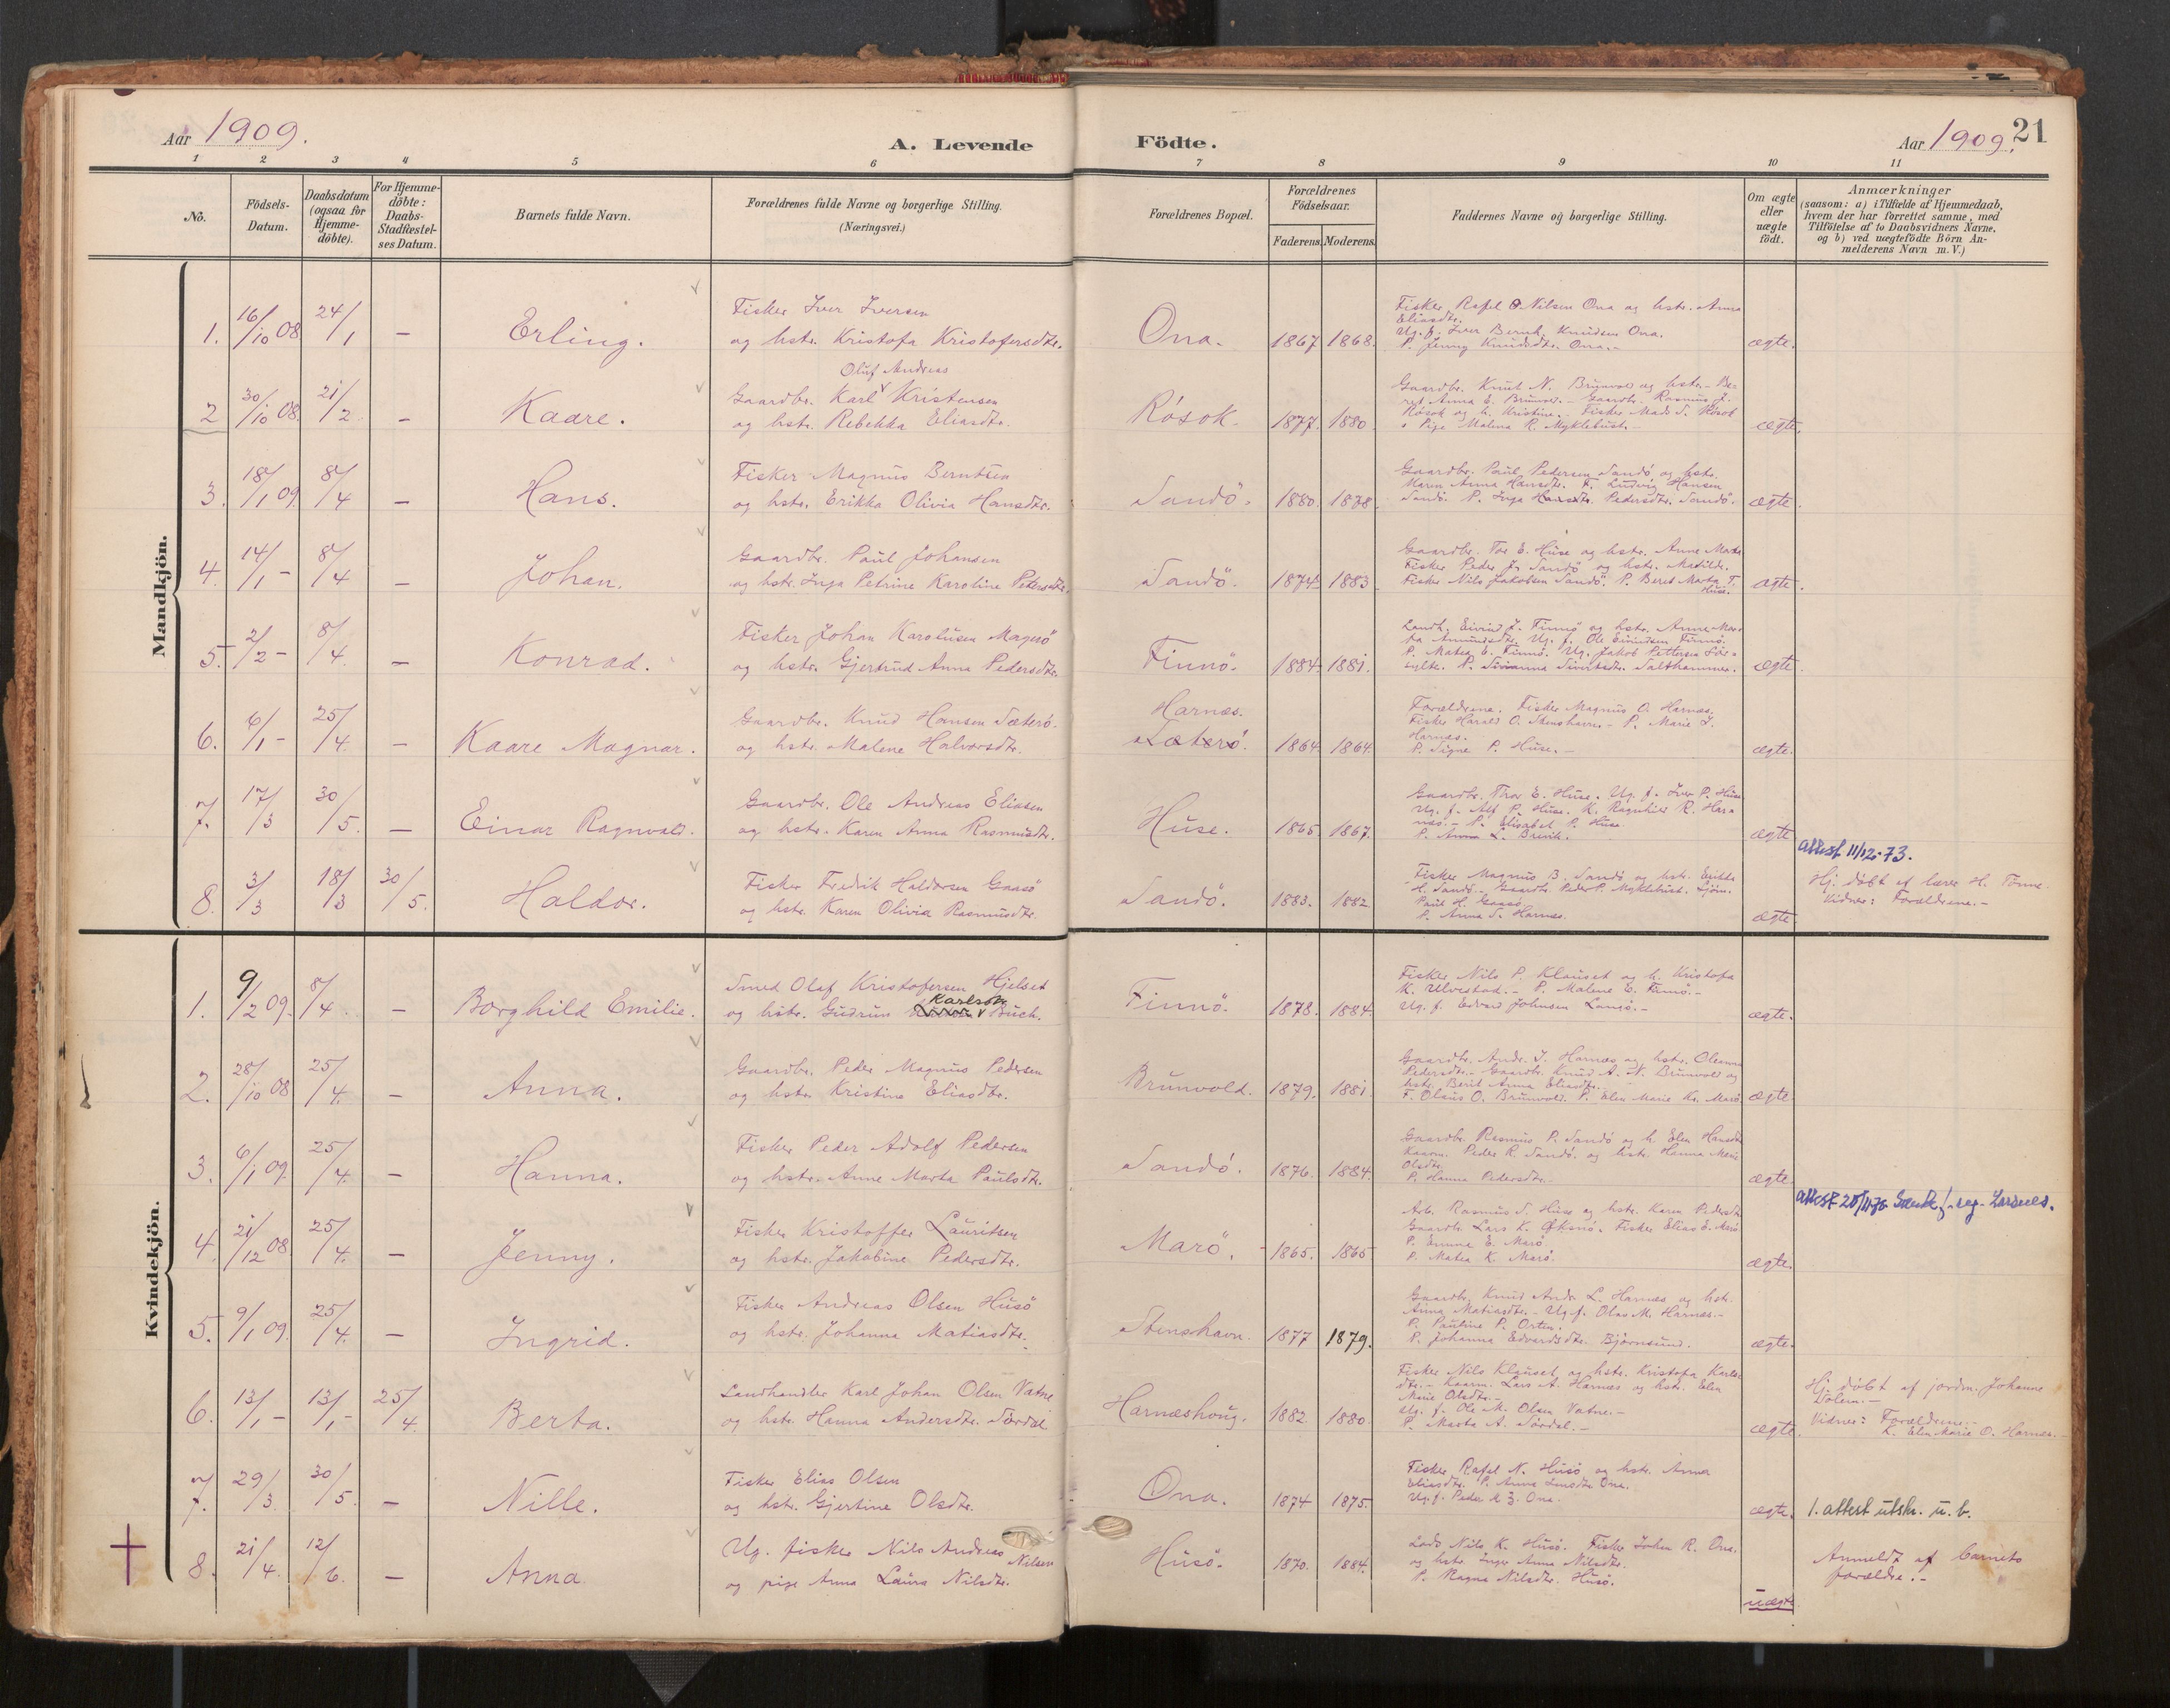 Aar 1909.
A. Levende Födte.
Aar 1909. 21
1 2 3 4 5 6 7 8 9 10 11
No.
Födsels-
Datum.
Daabsdatum
(ogsaa for
Hjemme-
döbte).
For Hjemme-
döbte:
Daabs-
Stadfæstel-
ses Datum.
Barnets fulde Navn.
Forældrenes fulde Navne og borgerlige Stilling.
(Næringsvei.)
Forældrenes Bopæl.
Forældrenes
Födselsaar.
Faderens. Moderens.
Faddernes Navne og borgerlige Stilling.
Om ægte
eller
uægte
födt.
Anmærkninger
(saasom: a) i Tilfælde af Hjemmedaab,
hvem der har forrettet samme, med
Tilföielse af to Daabsvidners Navne,
og b) ved uægtefödte Börn An-
melderens Navn m. V.)
Mandkjön.
1. 16/10 08 24/1 – Erling.
Fisker Iver Iversen
og hstr. Kristofa Kristofersdtr.
Ona. 1867 1868.
Fisker Rafel O. Nilsen Ona og hstr. Anna
Eliasdtr.
Ug. f. Iver Bernh. Knudsen Ona.
P. Jenny Knudsdtr. Ona.-
ægte.
2 30/10 08. 21/2. – Kaare.
Oluf Andreas
Gaardbr. Karl Kristensen
og hstr. Rebekka Eliasdtr.
Rösok. 1877. 1880.
Gaardbr. Knut N. Brunvold og hstr. Be-
ret Anna E. Brunvold. - Gaardbr. Rasmus J.
Rösok og h. Kristine. - Fisker Mads S. Rösok
o Pige Malena R. Myklebust. -
ægte.
3. 18/1 09. 8/4 – Hans.
Fisker Magnus Berntsen
og hstr. Erikka Olivia Hansdtr.
Sandö. 1880. 1878.
Gaardbr. Paul Pedersen Sandö og hstr.
Maren Anna Hansdtr. F. Ludvig Hansen
Sandö. P. Inga Hansdtr. Pedersdtr. Sandö.
ægte.
4. 14/1 - 8/4 – Johan.
Gaardbr. Paul Johansen
og hstr. Inga Petrine Karoline Petersdtr.
Sandö. 1874. 1883
Gaardbr. Tor E. Huse og hstr. Anne Marta
Fisker Peder J. Sandö og hstr. Matilde.
Fisker Nils Jakobsen Sandö. P. Beret Marta T.
Huse.
ægte.
5. 2/2 - 8/4. – Konrad.
Fisker Johan Karolusen Magnö
og hstr. Gjertrud Anna Pedersdtr.
Finnö. 1884. 1881.
Landh. Eivind J. Finnö og hstr. Anne Mar-
ta Amundsdtr. Ug. f. Ole Eivindsen Finnö.
P. Matea E. Finnö. Ug. Jakob Pettersen Sör-
sylte. P. Sivianna Sivertsdtr. Salthammer.
ægte.
6. 6/1 - 25/4. – Kaare Magnar.
Gaardbr. Knud Hansen Sæterö.
og hstr. Malene Halvorsdtr.
Harnæs.
Sæterö. 1864. 1864.
Forældrene. Fisker Magnus O. Harnæs.
Fisker Harald O. Stenshavn. - P. Marie I.
Harnæs.
P. Signe P. Huse. -
ægte.
7. 17/3 30/5. – Einar Ragnvald.
Gaardbr. Ole Andreas Eliasen
og hstr. Karen Anna Rasmusdtr.
Huse. 1865 1867.
Gaardbr. Thor E. Huse. Ug. f. Iver P. Huse
Ug. f. Alf P. Huse. K. Ragnhild R. Har-
næs. - P. Elisabet P. Huse.
P. Anna L. Brevik.
ægte
attest 11/12-73.
8. 3/3 18/3 30/5. Haldor.
Fisker Fredrik Haldorsen Gaasö
og hstr. Karen Olivia Rasmusdtr.
Sandö. 1883. 1882
Fisker Magnus B. Sandö og hstr. Erikka
H. Sandö. - Gaardbr. Peder P. Myklebust.
Paul H. Gaasö
P. Anna S. Harnæs.
ægte
Hj. döbt af lærer H. Tonne.
Vidner: Forældrene. -
Kvindekjön.
1. 9/2 09. 8/4. – Borghild Emilie.
Smed Olaf Kristofersen Hjelset
Karlson
og hstr. Gudrun Buch.
Finnö. 1878. 1884.
Fisker Nils P. Klauset og h. Kristofa
K. Ulvestad. - P. Malene E. Finnö. -
Ug. f. Edvard Johnsen Langö. -
ægte.
2. 28/10 08 25/4. – Anna.
Gaardbr. Peder Magnus Pedersen
og hstr. Kristine Eliasdtr.
Brunvold. 1879. 1881.
Gaardbr. Andr. I. Harnæs og hstr. Oleanna
Pedersdtr. - Gaardbr. Knud A. N. Brunvold og
hstr. Berit Anna Eliasdtr. -
F. Olaus O. Brunvold. P. Elen Marie Kr. Marö
ægte.
3. 6/1 09. 25/4. – Hanna.
Fisker Peder Adolf Pedersen
og hstr. Anne Marta Paulsdtr.
Sandö. 1876. 1884.
Gaardbr. Rasmus P. Sandö og h. Elen Hansdtr
Kaarm. Peder R. Sandö og hstr. Hanna Marie
Olsdtr.
P. Hanna Pedersdtr. -
ægte
4. 21/12 08 25/4. – Jenny.
Fisker Kristoffer Lauritsen
og hstr. Jakobine Pedersdtr.
Marö. 1865. 1865
Arb. Rasmus S. Huse og hstr. Karen Pedersdtr
Gaardbr. Lars K. Öksnö. Fisker Elias E. Marö
P. Emma E. Marö
P. Matea K. Marö.
ægte.
5. 9/1 09. 25/4. – Ingrid.
Fisker Andreas Olsen Husö
og hstr. Johanna Matiasdtr.
Stenshavn. 1877 1879.
Gaardbr. Knud Andr. L. Harnæs og hstr.
Anna Matiasdtr. - Ug. f. Olas M. Harnæs. -
P. Pauline P. Orten.
P. Johanna Edvardsdtr. Björnsund.
ægte.
6. 13/1 - 13/1 - 25/4. Berta.
Landhandler Karl Johan Olsen Vatne
og hstr. Hanna Andersdtr. Sördal
Harnæshoug. 1882. 1880.
Fisker Nils Klauset og hstr. Kristofa Karls-
dtr. - Kaarm. Lars A. Harnæs og hstr. Elen
Marie Olsdtr. -
Ug. f. Ole M. Olsen Vatne. -
P. Marta A. Sördal. -
ægte.
Hj. döbt af jordm. Johanne
Vidner: Forældrene. -
K. Elen Marie O. Harnæs. -
7. 29/3. 30/5. – Nille.
Fisker Elias Olsen
og hstr. Gjertine Olsdtr.
Ona. 1874 1875.
Fisker Rafel N. Husö og hstr. Anna
Eliasdtr. P. Anna Ona.
Ug. f. Peder Ona.
ægte.
1. attest utskr. u. b.
8. 21/4. 12/6. – Anna
Ug. fisker Nils Andreas Nilsen
og pige Anna Laura Nilsdtr.
Husö. 1870. 1884.
Lods Nils K. Husö. Fisker Johan R. Ona.
og hstr. Inger Anna Nilsdtr.
P. Ragna Nilsdtr. Husö.
uægte
Anmeldt af barnets
forældre. -